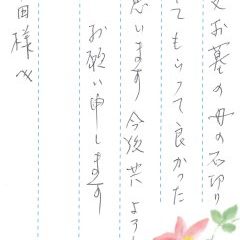 お墓の母の石切り
てもらって良かった
思います今後共よろし
お願い申します
田様へ